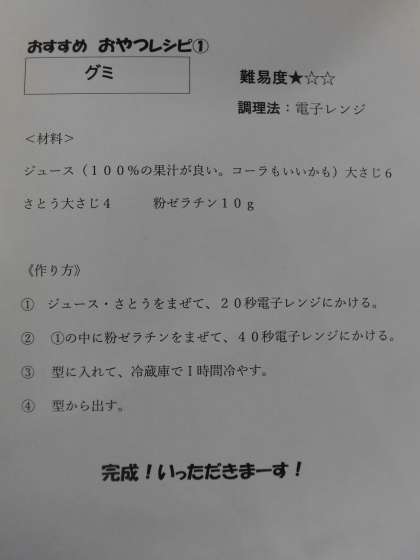 おすすめ おやつレシピ①
グミ
難易度★☆☆
調理法：電子レンジ
＜材料＞
ジュース（１００％の果汁が良い。コーラもいいかも）大さじ６
さとう大さじ４　　　粉ゼラチン１０ｇ
《作り方》
①　ジュース・さとうをまぜて、２０秒電子レンジにかける。
②　①の中に粉ゼラチンをまぜて、４０秒電子レンジにかける。
③　型に入れて、冷蔵庫で１時間冷やす。
④　型から出す。
完成！いっただきまーす！